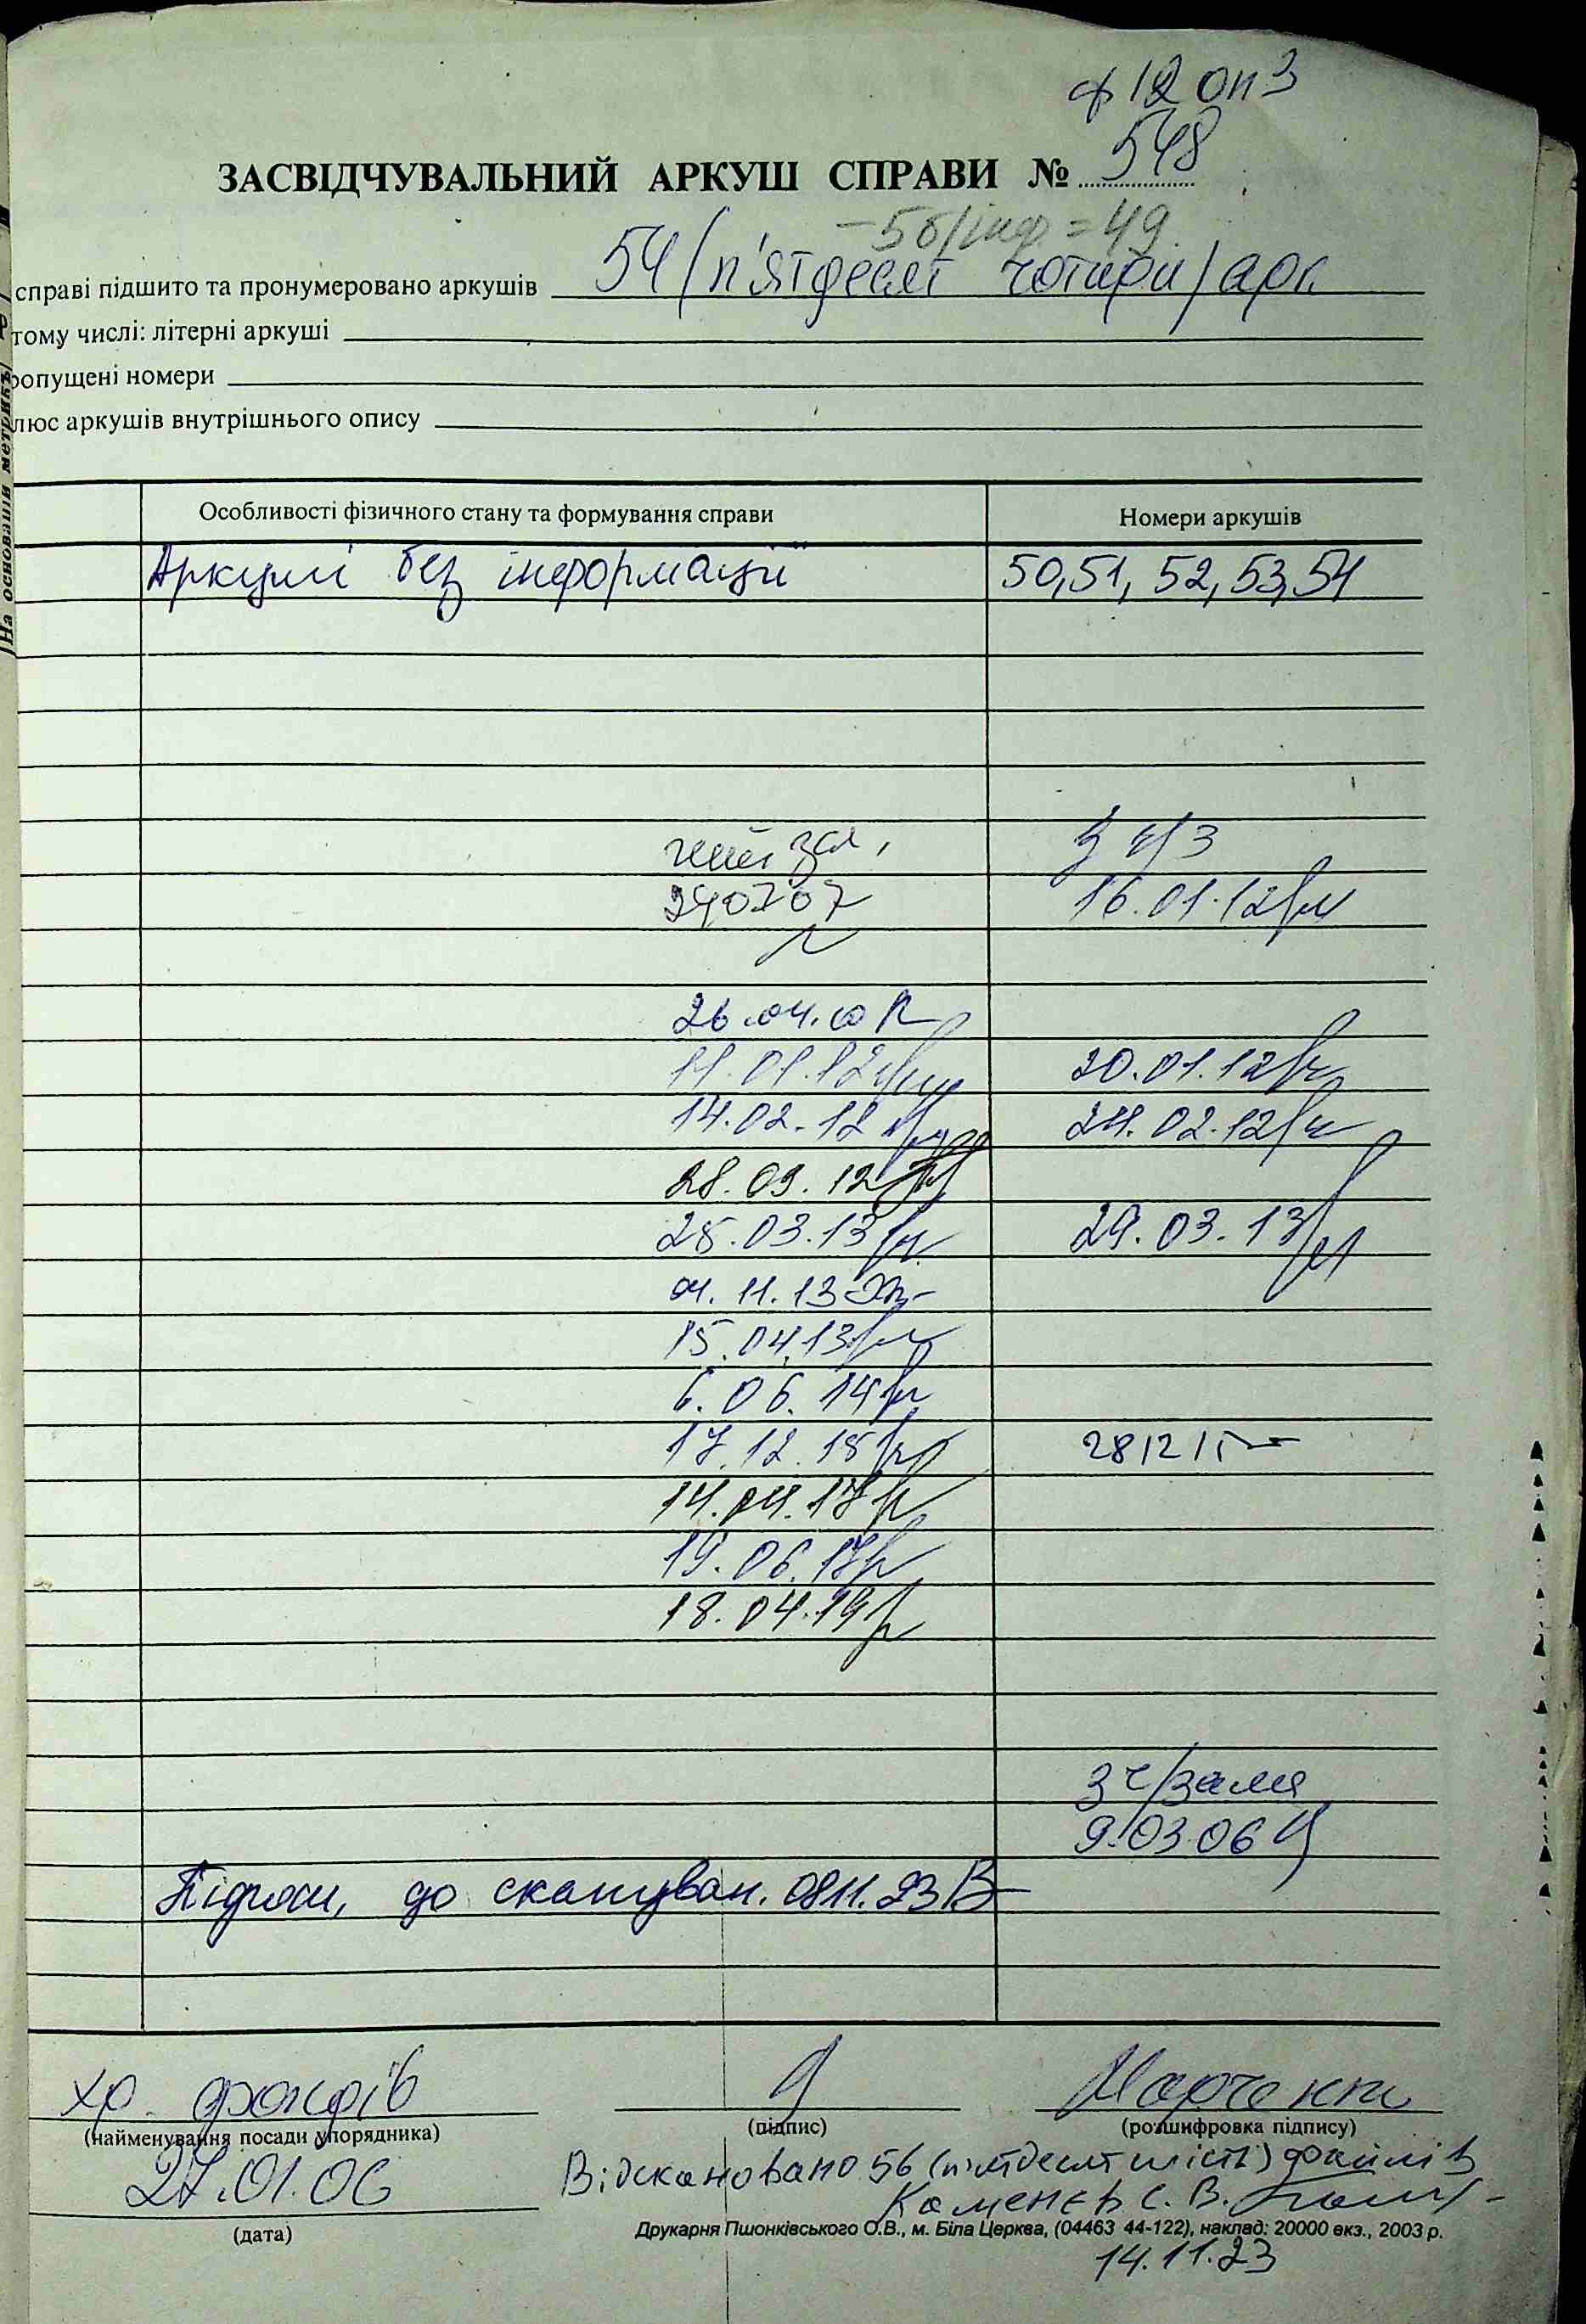 ф 12 оп 3
ЗАСВІДЧУВАЛЬНИЙ АРКУШ СПРАВИ № 548
- 5 б/інф = 49
справі підшито та пронумеровано аркушів 54 / п'ятдесят чотири / арк.
тому числі: літерні аркуші
ропущені номери
люс аркушів внутрішнього опису
На основании метрикъ
Особливості фізичного стану та формування справи Номери аркушів
Аркуші без інформації 50, 51, 52, 53, 54
чит зал, З ч/З
240707 16.01.12
26.04.10
11.01.12 20.01.12
14.02.12 24.02.12
28.09.12
25.03.13 29.03.13
01.11.13
15.04.13
6.06.14
17.12.15 281215
14.04.17
19.06.17
18.04.19
З ч/зала
9.03.06
Підгот, до скануван. 08 11. 23
хр. фондів Марченко
(найменування посади упорядника) (підпис) (розшифровка підпису)
27.01.06 Відскановано 56 (п'ятдесят шість) файлів
Каменєв С. В.
(дата) Друкарня Пшонківського О.В., м. Біла Церква, (04463 44-122), наклад: 20000 екз., 2003 р.
14.11.23